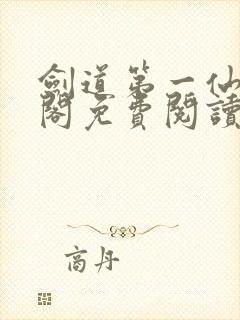 劍道第一仙
閣免費閱讀
商丹